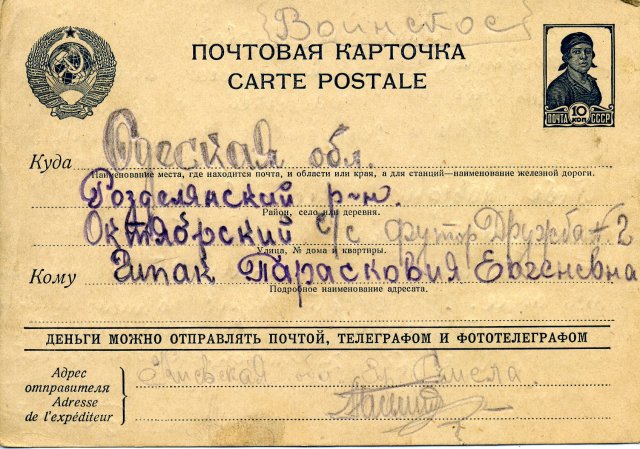 {Воинское}
ПОЧТОВАЯ КАРТОЧКА
CARTE POSTALE
ПОЧТА 10 КОП СССР
Куда Одесская обл.
Наименование места, где находится почта, и области или края, а для станций—наименование железной дороги.
Розделянский р-н.
Район, село или деревня.
Октябрский с/с футор Дружба №2
Улица, № дома и квартиры.
Кому Шпак Парасковия Евгеневна
Подробное наименование адресата.
ДЕНЬГИ МОЖНО ОТПРАВЛЯТЬ ПОЧТОЙ, ТЕЛЕГРАФОМ И ФОТОТЕЛЕГРАФОМ
Адрес
отправителя
Adresse
de l'expéditeur
Киевская обл.